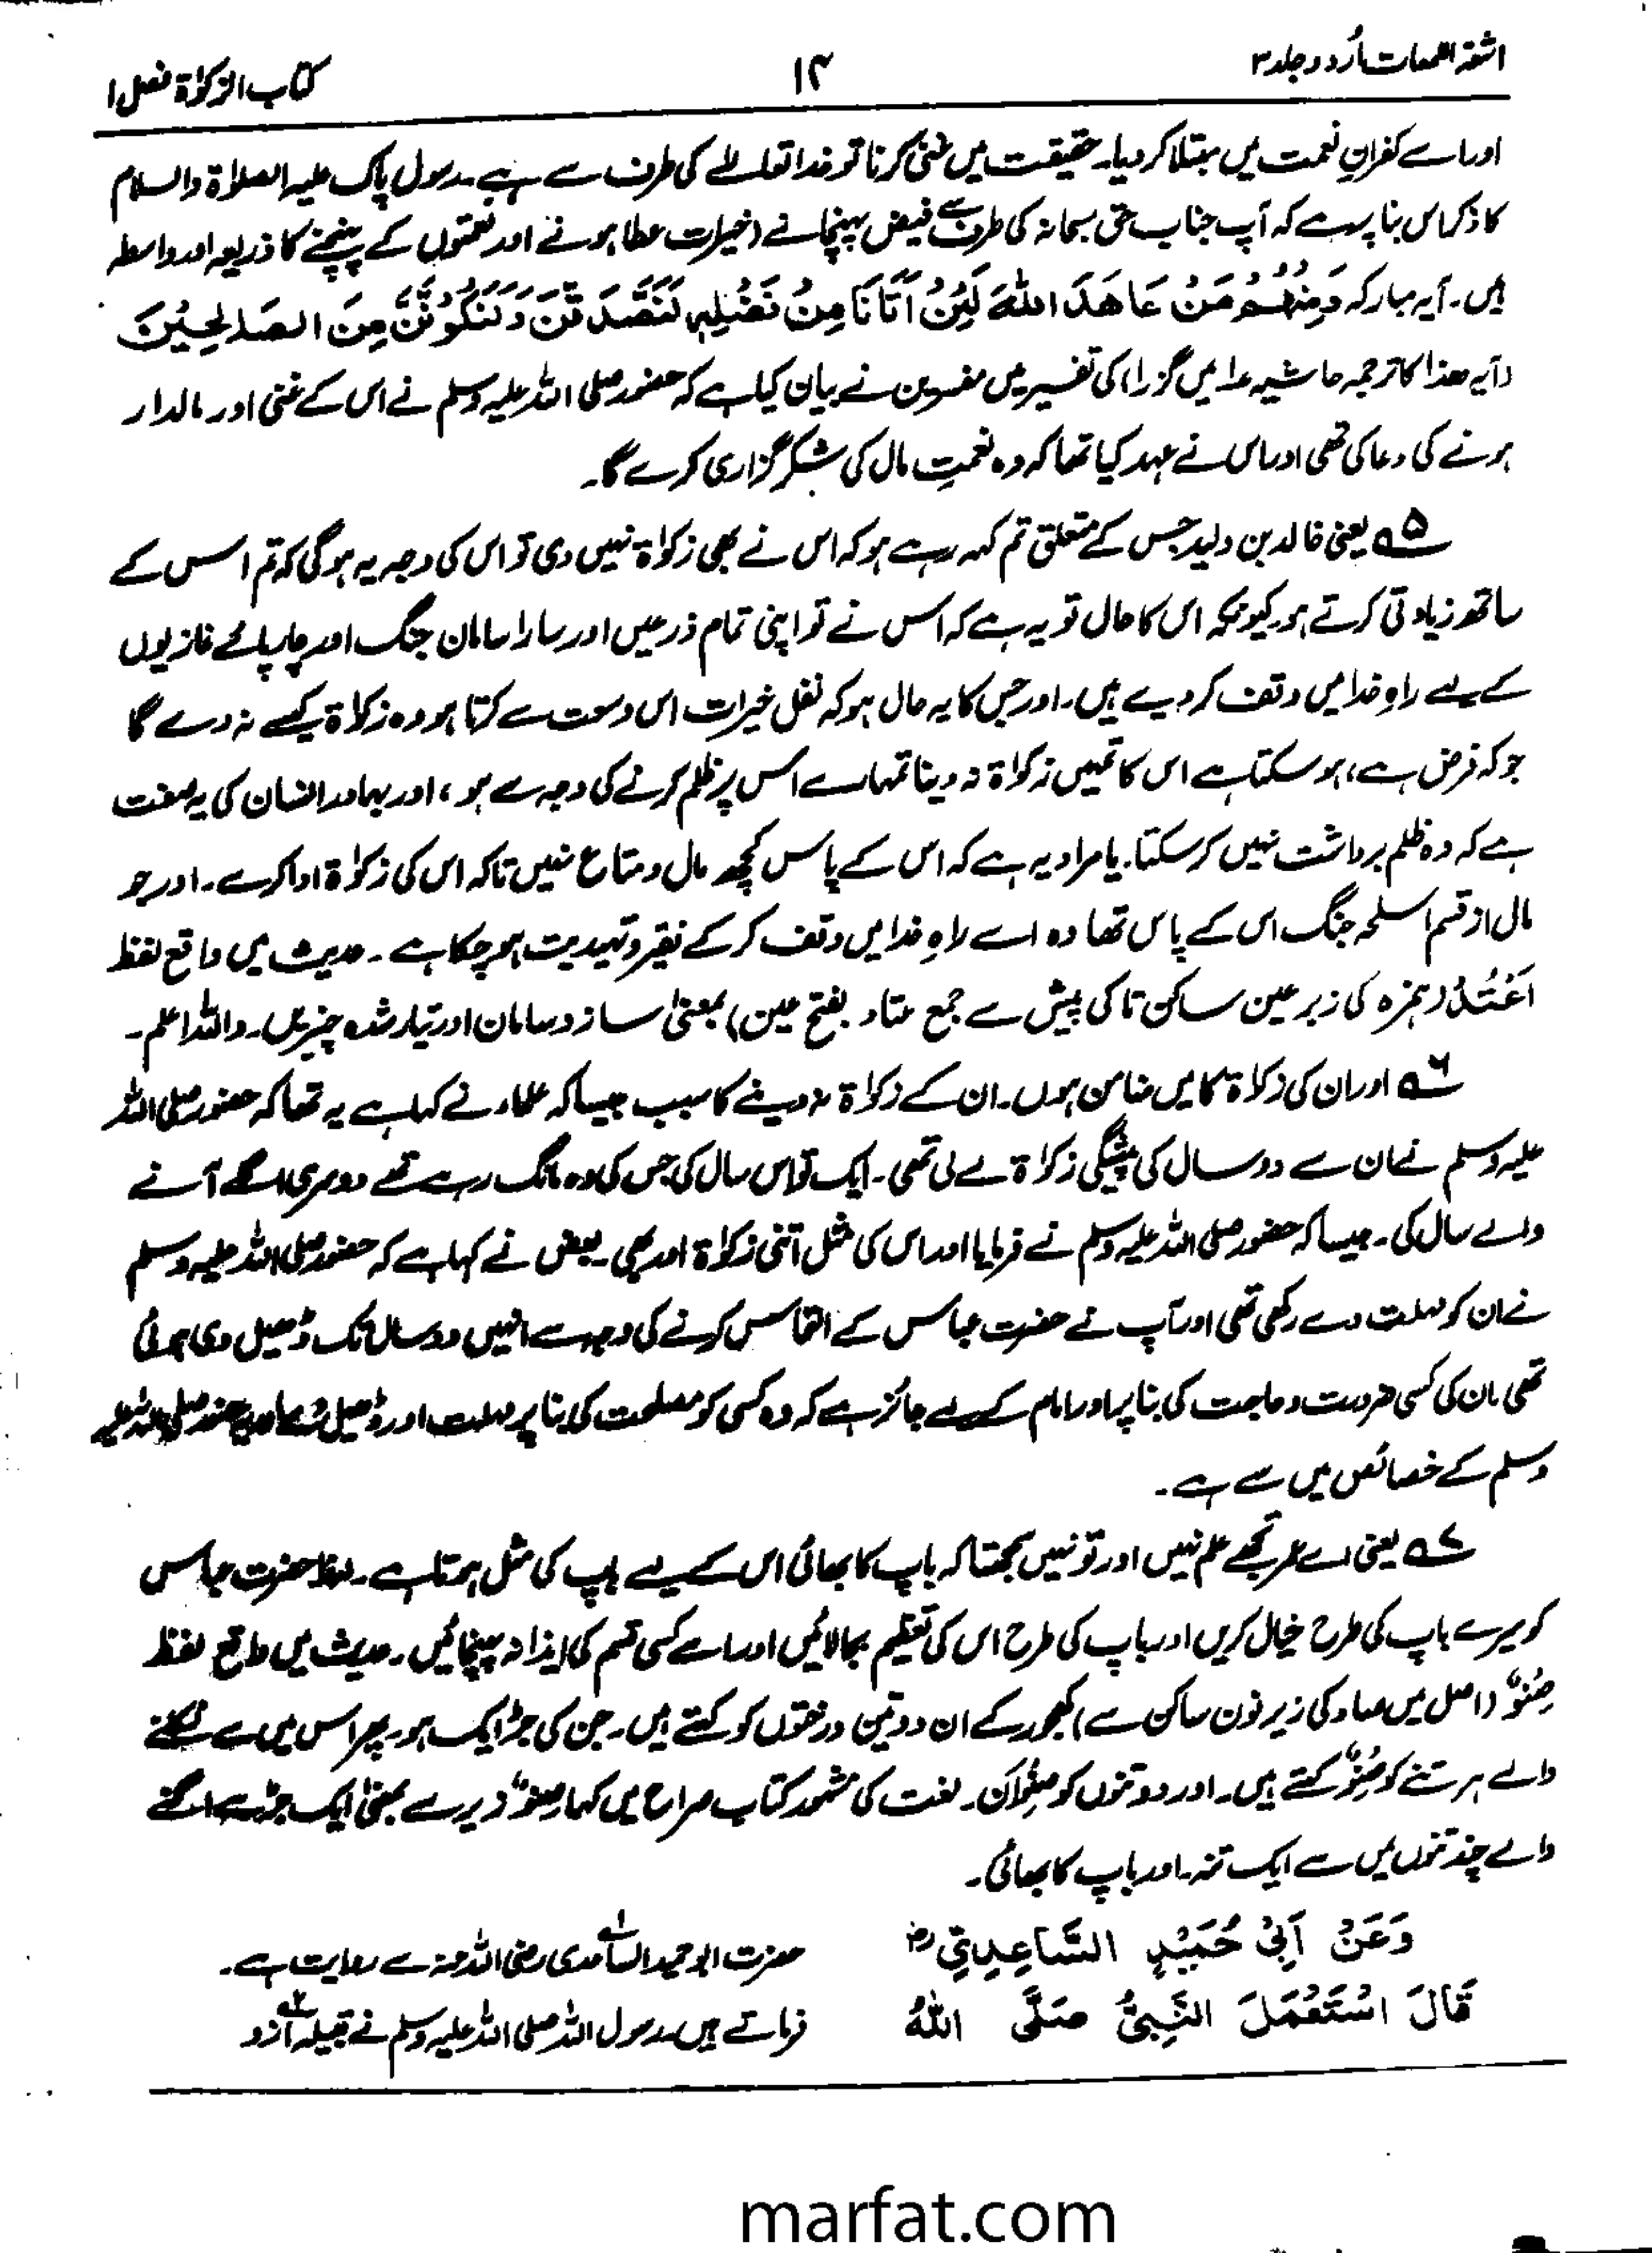 اشعۃ اللمعات اُردو جلد ۳
۱۴
کتاب الزکوٰۃ فصل ۱
اور اسے کفرانِ نعمت میں مبتلا کر دیا۔ حقیقت میں غنی کرنا تو خدا تعالےٰ کی طرف سے ہے۔ رسول پاک علیہ الصلوٰۃ والسلام
کا ذکر اس بنا پر ہے کہ آپ جناب حق سبحانہ کی طرف سے فیض پہنچانے (خیرات عطا ہونے اور نعمتوں کے پہنچنے کا ذریعہ اور واسطہ
ہیں۔ آیہ مبارکہ وَمِنْهُمْ مَنْ عَاهَدَ اللهَ لَئِنْ اٰتَانَا مِنْ فَضْلِهٖ لَنَصَّدَّقَنَّ وَلَنَكُوْنَنَّ مِنَ الصَّالِحِيْنَ
(آیہ ھذا کا ترجمہ حاشیہ ۱ میں گزرا) کی تفسیر میں مفسرین نے بیان کیا ہے کہ حضور صلی اللہ علیہ وسلم نے اس کے غنی اور مالدار
ہونے کی دعا کی تھی اور اس نے عہد کیا تھا کہ وہ نعمتِ مال کی شکر گزاری کرے گا۔
۵ یعنی خالد بن ولید جس کے متعلق تم کہہ رہے ہو کہ اس نے بھی زکوٰۃ نہیں دی تو اس کی وجہ یہ ہوگی کہ تم اس کے
ساتھ زیادتی کرتے ہو۔ کیونکہ اس کا حال تو یہ ہے کہ اس نے تو اپنی تمام ذرعیں اور سارا سامان جنگ اور چارپائے غازیوں
کے لیے راہِ خدا میں وقف کر دیے ہیں۔ اور جس کا یہ حال ہو کہ نفل خیرات اس وسعت سے کرتا ہو وہ زکاۃ کیسے نہ دے گا
جو کہ فرض ہے، ہو سکتا ہے اس کا تمہیں زکوٰۃ نہ دینا تمہارے اس پر ظلم کرنے کی وجہ سے ہو، اور بہادر انسان کی یہ صفت
ہے کہ وہ ظلم برداشت نہیں کر سکتا۔ یا مراد یہ ہے کہ اس کے پاس کچھ مال و متاع نہیں تاکہ اس کی زکوٰۃ ادا کرے۔ اور جو
مال از قسم اسلحہ جنگ اس کے پاس تھا وہ اسے راہِ خدا میں وقف کر کے فقیر و تہیدست ہو چکا ہے۔ حدیث میں واقع لفظ
اَعْتُدٌ (ہمزہ کی زبر عین ساکن تا کی پیش سے جمع عتاد بفتح عین) بمعنیٰ ساز و سامان اور تیار شدہ چیزیں۔ واللہ اعلم۔
۶ اور ان کی زکوٰۃ کا میں ضامن ہوں۔ ان کے زکوٰۃ نہ دینے کا سبب جیسا کہ علماء نے کہا ہے یہ تھا کہ حضور صلی اللہ
علیہ وسلم نے ان سے دو سال کی پیشگی زکوٰۃ لے لی تھی۔ ایک تو اس سال کی جس کی وہ مانگ رہے تھے دوسری اگلے آنے
والے سال کی۔ جیسا کہ حضور صلی اللہ علیہ وسلم نے فرمایا اور اس کی مثل اتنی زکوٰۃ اور بھی۔ بعض نے کہا ہے کہ حضور صلی اللہ علیہ وسلم
نے ان کو مہلت دے رکھی تھی اور آپ نے حضرت عباس کے التماس کرنے کی وجہ سے انہیں دو سال تک ڈھیل دی ہوئی
تھی ان کی کسی ضرورت و حاجت کی بنا پر اور امام کے لیے جائز ہے کہ وہ کسی کو مصلحت کی بنا پر مہلت اور ڈھیل دے اور یہ حضور صلی اللہ علیہ
وسلم کے خصائص میں سے ہے۔
۷ یعنی اے عمر تجھے علم نہیں اور تو نہیں سمجھتا کہ باپ کا بھائی اس کے لیے باپ کی مثل ہوتا ہے۔ لہٰذا حضرت عباس
کو میرے باپ کی طرح خیال کریں اور باپ کی طرح اس کی تعظیم بجا لائیں اور اسے کسی قسم کی ایذا نہ پہنچائیں۔ حدیث میں واقع لفظ
صِنْوٌ (اصل میں صاد کی زیر نون ساکن سے) کھجور کے ان دو تین درختوں کو کہتے ہیں۔ جن کی جڑ ایک ہو۔ پھر اس میں سے نکلنے
والے ہر تنے کو صِنْوٌ کہتے ہیں۔ اور دو تنوں کو صِنْوَان۔ لغت کی مشہور کتاب صراح میں کہا صِنْوٌ زیر سے بمعنیٰ ایک جڑ سے اگنے
والے چند تنوں میں سے ایک تنہ۔ اور باپ کا بھائی۔
وَعَنْ اَبِيْ حُمَيْدٍ السَّاعِدِيِّ رض
قَالَ اسْتَعْمَلَ النَّبِيُّ صَلَّى اللهُ
حضرت ابو حمید الساعدی۱ رضی اللہ عنہ سے روایت ہے۔
فرماتے ہیں رسول اللہ صلی اللہ علیہ وسلم نے قبیلہ ازد۲
marfat.com